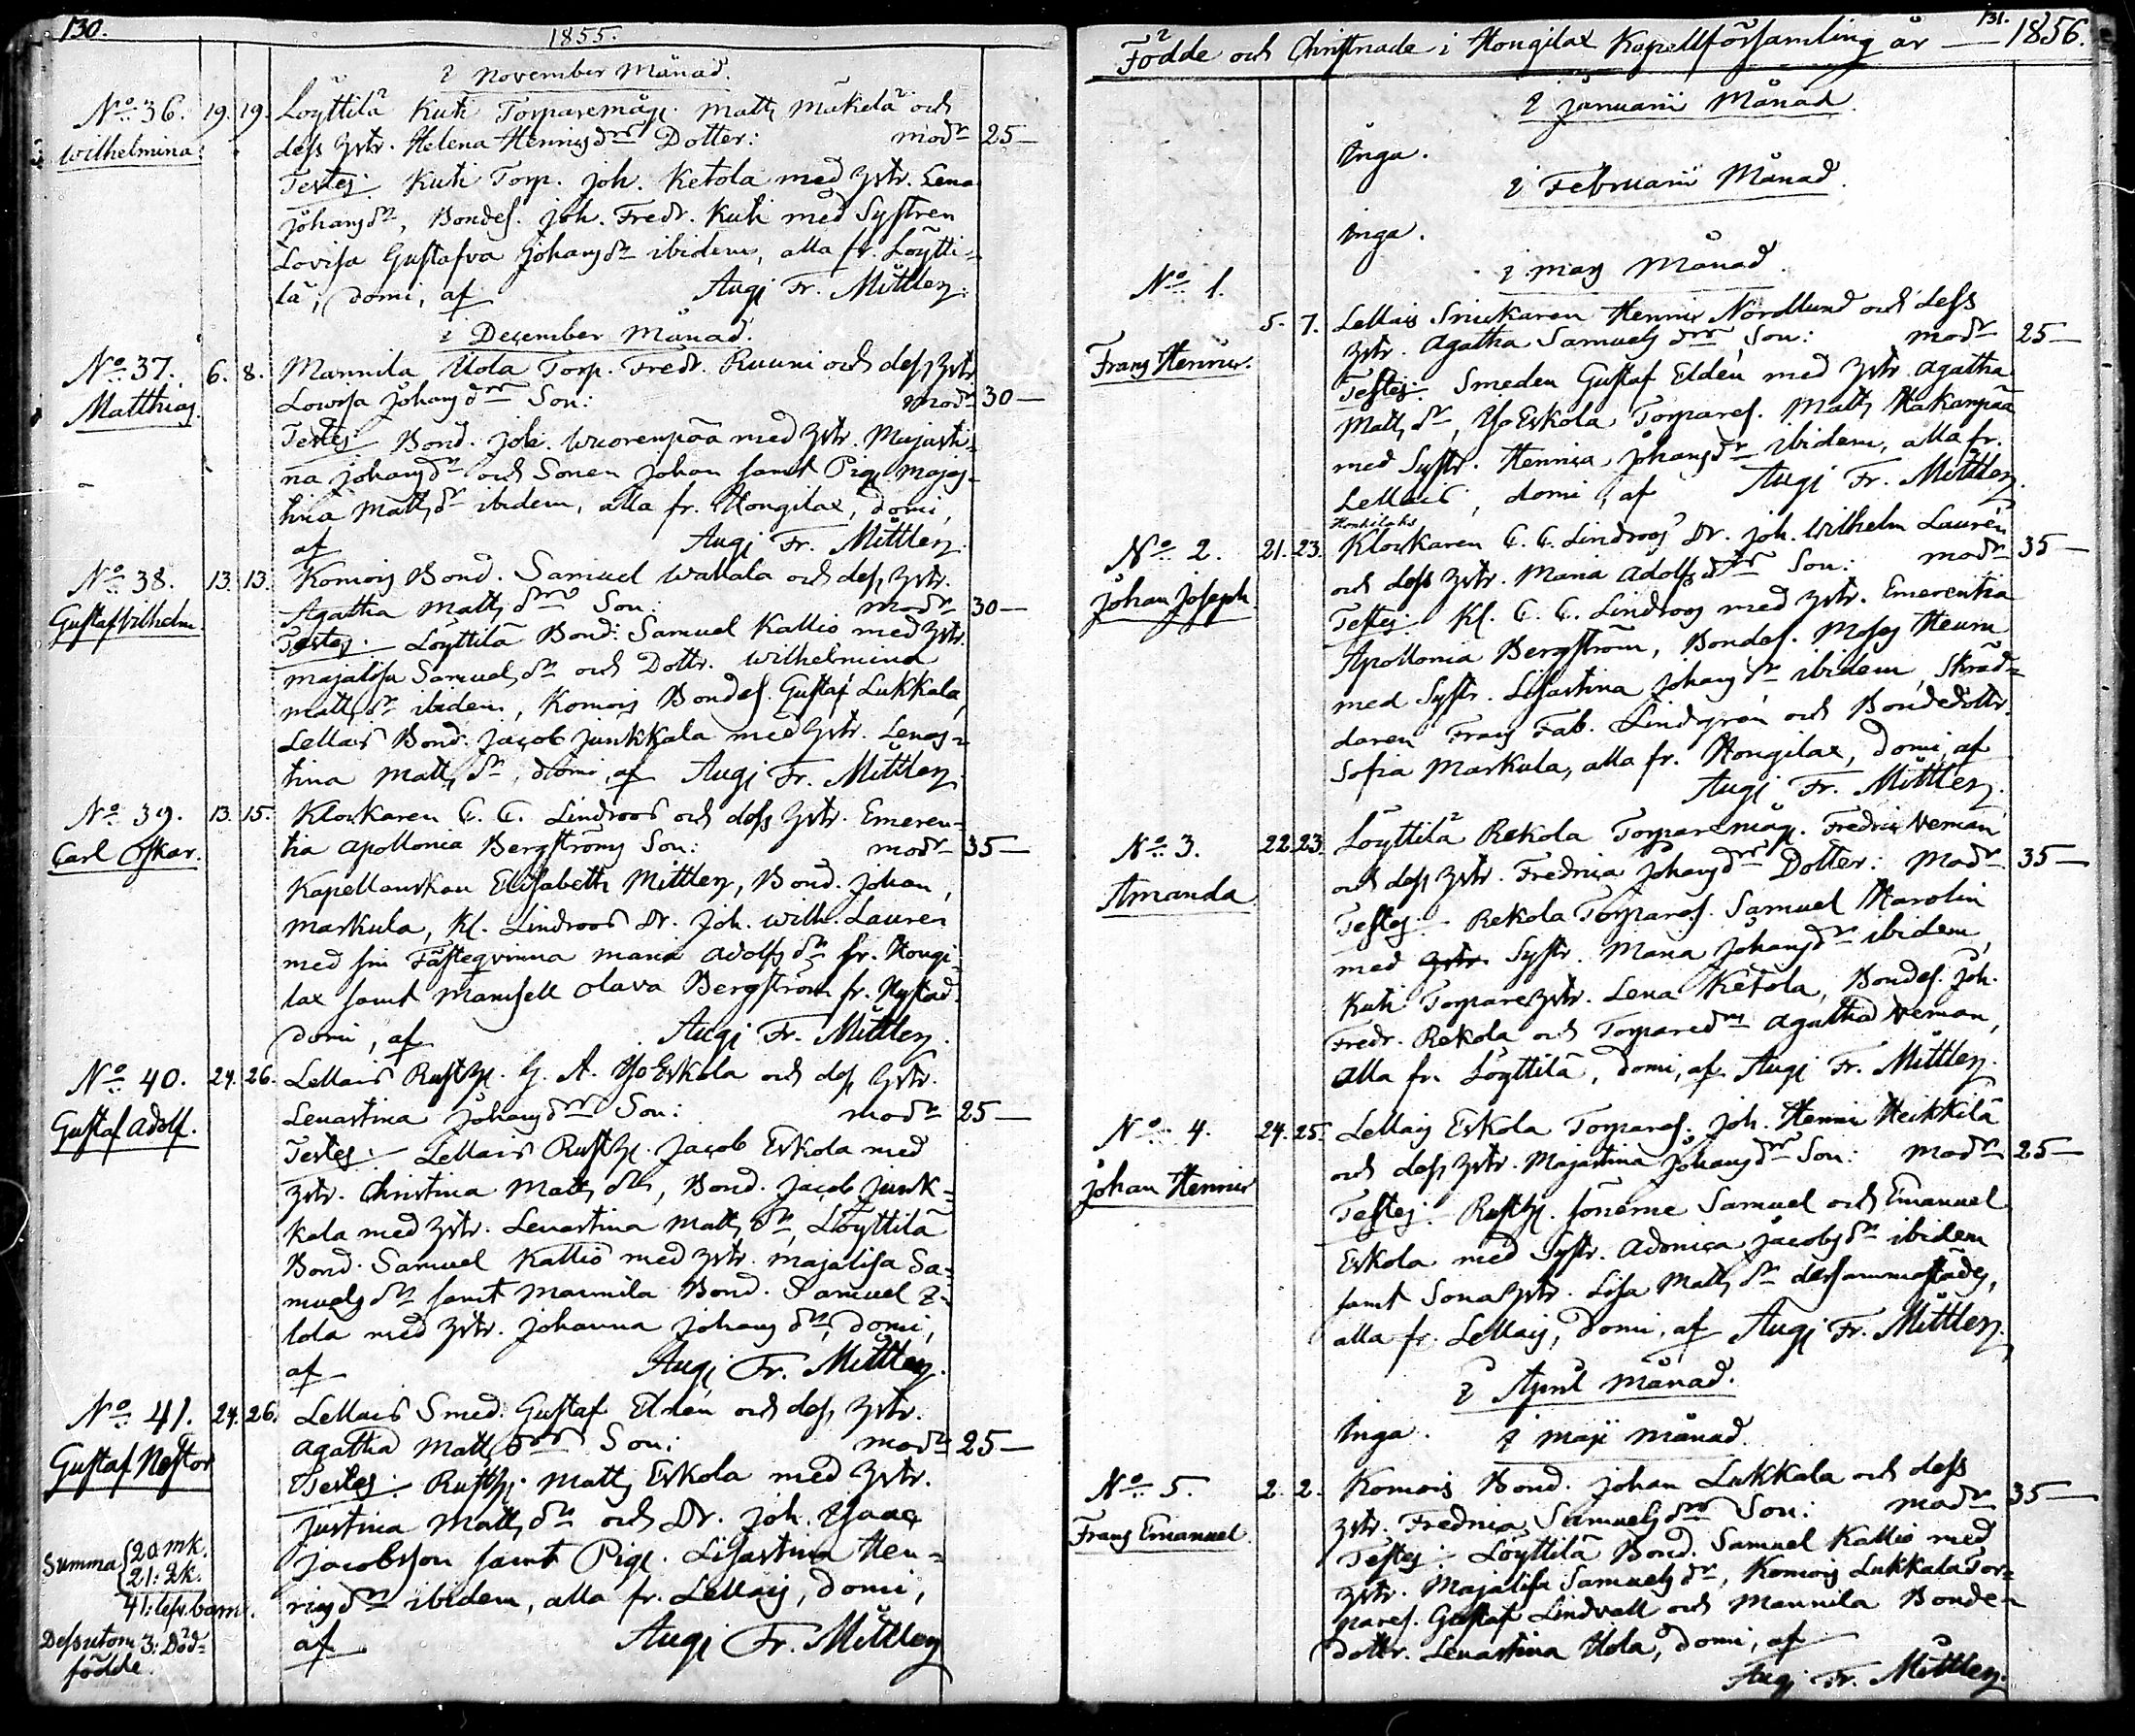 130.
1855.
i November Månad.
No 36. 19. 19. Löyttilä Kuti Torparemåg. Matts Mäkelä och
Wilhelmina. dess hstr. Helena Henricsdrs Dotter: modr 25 —
Testes: Kuti Torp. Joh. Ketola med hstr. Lena
Johansdr, Bondes. Joh. Fredr. Kuti med Systren
Lovisa Gustafva Johansdr ibidem, alla fr. Löytti-
lä, domi, af Augi Fr. Mittler.
i December Månad.
No 37. 6. 8. Mannila Uola Torp. Fredr. Ruuni och dess hstr
Matthias. Lowisa Johansdrs Son: modr 30 —
Testes: Bond. Joh. Wuorenpää med hstr. Majasti-
na Johansdr och Sonen Johan samt Pig. Majas-
tina Mattsdr ibidem, alla fr. Hongilax, domi,
af Augi Fr. Mittler.
No 38. 13. 13. Komois Bond. Samuel Wallala och dess hstr.
Gustaf Vilhelm. Agatha Mattsdrs Son: modr 30 —
Testes: Löyttilä Bond. Samuel Kallio med hstr.
Majalisa Samuelsdr och Dottr. Wilhelmina
Mattsdr ibidem, Komois Bondes. Gustaf Lukkala,
Lellais Bond. Jacob Junkkala med hstr. Lenas-
tina Mattsdr, domi, af Augi Fr. Mittler.
No 39. 13. 15. Klockaren C. C. Lindroos och dess hstr. Emeren-
Carl Oskar. tia Apollonia Bergströms Son: modr 35 —
Kapellanskan Elisabeth Mittler, Bond. Johan
Markula, Kl. Lindroos Dr. Joh. Wilh. Lauren
med sin Fästeqvinna Maria Adolfsdr fr. Hongi-
lax samt Mamsell Olava Bergström fr. Nystad.
domi, af Augi Fr. Mittler.
No 40. 24. 26. Lellais Rusth. G. A. YsoEskola och dess hstr.
Gustaf Adolf. Lenastina Johansdrs Son: modr 25 —
Testes: Lellais Rusth. Jacob Eskola med
hstr. Christina Mattsdr, Bond. Jacob Junk-
kala med hstr. Lenastina Mattsdr, Löyttilä
Bond. Samuel Kallio med hstr. Majalisa Sa-
muelsdr samt Mannila Bond. Samuel
lola med hstr. Johanna Johansdr, domi,
af Augi Fr. Mittler.
No 41. 24. 26. Lellais Smed. Gustaf Eldén och dess hstr.
Gustaf Nestor Agatha Mattsdrs Son: modr 25 —
Testes: Rusth. Matts Eskola med hstr.
Justina Mattsdr och Dr. Joh. Isaac
Jacobsson samt Pig. Lisastina Hen-
ricsdr ibidem, alla fr. Lellais, domi,
af Augi Fr. Mittler
Summa 20 mk.
21: qk.
41: lefv. barn.
Dessutom 3: Död-
födde.
131.
Födde och Christnade i Hongilax Kapellförsamling år — 1856.
i Januarii Månad.
Inga.
i Februarii Månad.
Inga.
i Mars Månad.
No 1. 5. 7. Lellais Snickaren Henric Nordlund och dess
Frans Henric. hstr. Agatha Samuelsdrs Son: modr 25 —
Testes: Smeden Gustaf Eldén med hstr. Agatha
Mattsdr, YsoEskola Torpares. Matts Hakanpää
med Systr. Henrica Johansdr ibidem, alla fr.
Lellais, domi, af Augi Fr. Mittler.
Honkilahs
No 2. 21. 23. Klockaren C. C. Lindroos Dr. Joh. Wilhelm Laurén
Johan Joseph och dess hstr. Maria Adolfsdrs Son: modr 35 —
Testes: Kl. C. C. Lindroos med hstr. Emerentia
Apollonia Bergström, Bondes. Moses Heuru
med Systr. Lisastina Johansdr ibidem, Skräd-
daren Frans Fab. Lindgrén och Bondedottr.
Sofia Markula, alla fr. Hongilax, domi, af
Augi Fr. Mittler.
No 3. 22. 23. Löyttilä Rekola Torparemåg. Fredric Neman
Amanda och dess hstr. Fredrica Johansdrs Dotter: Modr 35 —
Testes: Rekola Torpares. Samuel Karolin
med hstr. Systr. Maria Johansdr ibidem,
Kuti Torparehstr. Lena Ketola, Bondes. Joh.
Fredr. Rekola och Torparedr Agatha Neman,
alla fr. Löyttilä, domi, af Augi Fr. Mittler.
No 4. 24. 25. Lellais Eskola Torpares. Joh. Henric Heikkilä
Johan Henric och dess hstr. Majastina Johansdrs Son: modr 25 —
Testes: Rusth. sönerne Samuel och Emanuel
Eskola med Systr. Adonica Jacobsdr ibidem
samt Sonahstr. Lisa Mattsdr dersammastädes,
alla fr. Lellais, domi, af Augi Fr. Mittler.
i April Månad.
Inga. i Maji Månad.
No 5. 2. 2. Komois Bond. Johan Lukkala och dess
Frans Emanuel. hstr. Fredrica Samuelsdrs Son: modr 35 —
Testes: Löyttilä Bond. Samuel Kallio med
hstr. Majalisa Samuelsdr, Komois Lukkala Tor-
pares. Gustaf Lindvall och Mannila Bonde-
dottr. Lenastina Uola, domi, af
Augi Fr. Mittler.